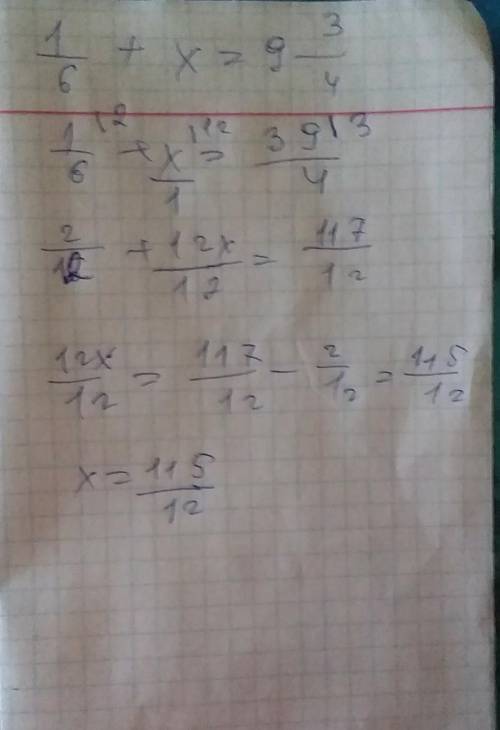 1/6 + x = 9 3/4
1/6 |2 + x/1 |12 = 39/4 |3
2/12 + 12x/12 = 117/12
12x/12 = 117/12 - 2/12 = 115/12
x = 115/12